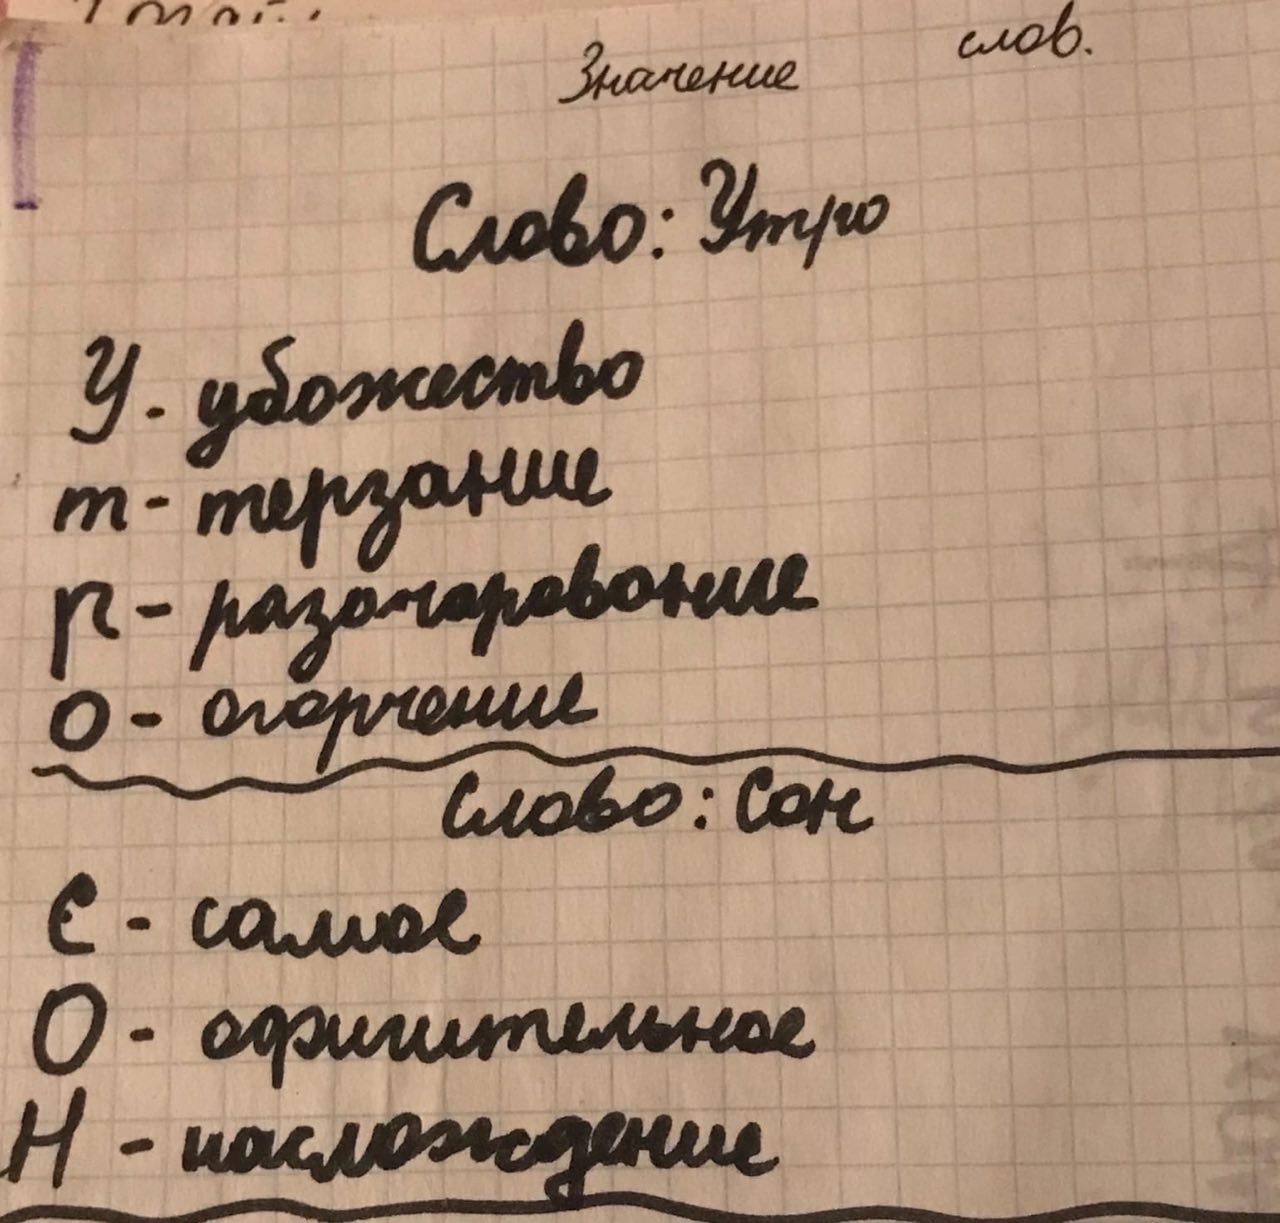 Значение слов.
Слово: Утро
У - убожество
т - терзание
р - разочарование
о - огорчение
Слово: Сон
С - самое
О - офигительное
Н - наслождение